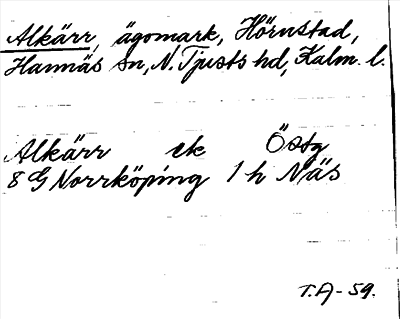 Alkärr, ägomark, Hörnstad,
Hannäs sn, N. Tjusts hd, Kalm. l.
Alkärr ek Östg
8 G Norrköping 1 h Näs
T.A-59.